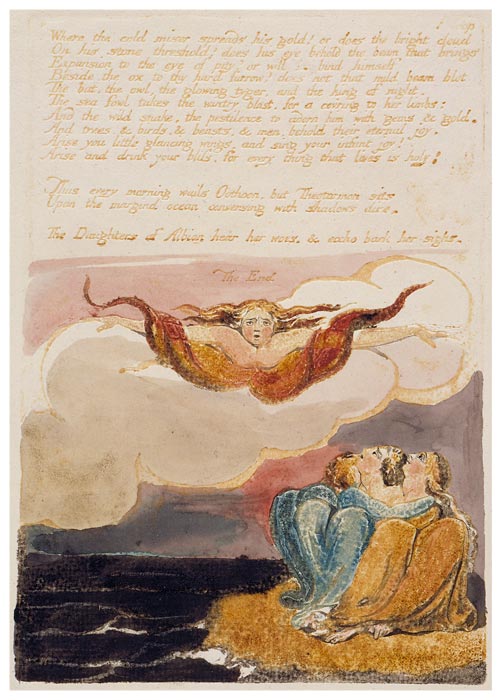 Where the cold miser spreads his gold? or does the bright cloud
On his stone threshold? does his eye behold the beam that brings
Expansion to the eye of pity? or will bind himself
Beside the ox to thy hard furrow? does not that mild beam blot
The bat, the owl, the glowing tyger, and the king of night.
The sea fowl takes the wintry blast. for a cov'ring to her limbs:
And the wild snake, the pestilence to adorn him with gems & gold.
And trees. & birds. & beasts. & men. behold their eternal joy.
Arise you little glancing wings, and sing your infant joy!
Arise and drink your bliss, for every thing that lives is holy!
Thus every morning wails Oothoon. but Theotormon sits
Upon the margind ocean conversing with shadows dire.
The Daughters of Albion hear her woes, & eccho back her sighs.
The End